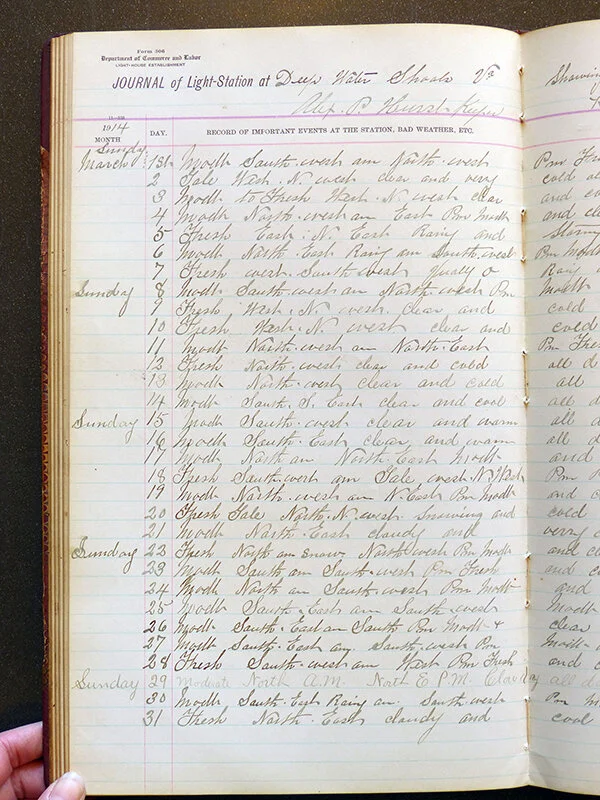 Form 306
Department of Commerce and Labor
LIGHT-HOUSE ESTABLISHMENT
JOURNAL of Light-Station at Deep Water Shoals Va
Alex. P. Hurst Keeper
1914
MONTH DAY. RECORD OF IMPORTANT EVENTS AT THE STATION, BAD WEATHER, ETC.
Sunday
March 1st Modt South. west am North. west
2 Gale West. N. west clear and very
3 Modt to Fresh West. N. west clear
4 Modt North. west am East Pm Modt
5 Fresh East. N. East Rainy and
6 Modt North. East Rainy am South. west
7 Fresh west. South west
Sunday 8 Modt South. west am North. west Pm
9 Fresh West. N. west clear and
10 Fresh West. N. west clear and
11 Modt North. west am North. East
12 Fresh North. west clear and cold
13 Modt North. west clear and cold
14 Modt South. S. East clear and cool
Sunday 15 Modt South. west clear and warm
16 Modt South. East clear and warm
17 Modt North am North. East Modt
18 Fresh South. west am Gale west. N. West
19 Modt North. west am N. East Pm Modt
20 Fresh Gale North. N. west Snowing and
21 Modt North. East cloudy and
Sunday 22 Fresh North am snow North west Pm Modt
23 Modt South am South. west Pm Fresh
24 Modt North am South. west Pm Modt
25 Modt South. East am South. west
26 Modt South. East am South Pm Modt &
27 Modt South. East am South. west Pm
28 Fresh South. west am West Pm Fresh
Sunday 29 Moderate North A.M. North E P.M. Cloudy
30 Modt South. East Rainy am South. west
31 Fresh North. East cloudy and
Showing
Pm Fresh
cold
and
and
Stormy
Pm Modt
Rainy
Modt
cold
cold
Pm Fresh
all
all
all
all
all
and
Pm
and
cold
very
and
and
and
Modt
clear
Modt
and
all
Pm
cool